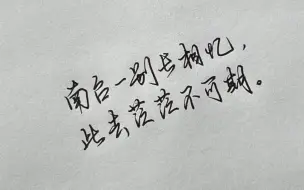 南台一别长相忆，
此去茫茫不可期。